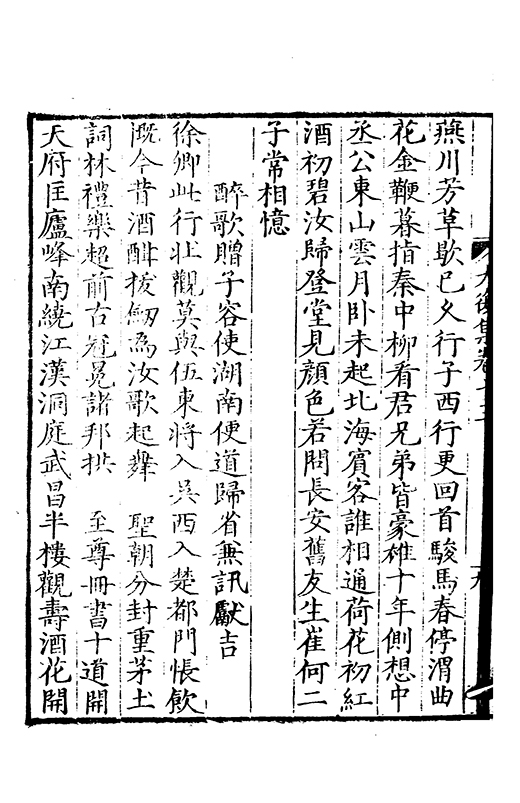 燕川芳草歇已久行子西行更回首駿馬春停渭曲
花金鞭暮指秦中柳看君兄弟皆豪雄十年側想中
丞公東山雲月卧未起北海賓客誰相通荷花初紅
酒初碧汝歸登堂見顏色若問長安舊友生崔何二
子常相憶
醉歌贈子容使湖南便道歸省兼訊獻吉
徐卿此行壯觀莫與伍東將入吳西入楚都門悵飲
慨今昔酒酣拔劒爲汝歌起舞 聖朝分封重茅土
詞林禮樂超前古冠冕諸邦拱 至尊冊書十道開
天府匡廬峰南繞江漢洞庭武昌半樓觀壽酒花開